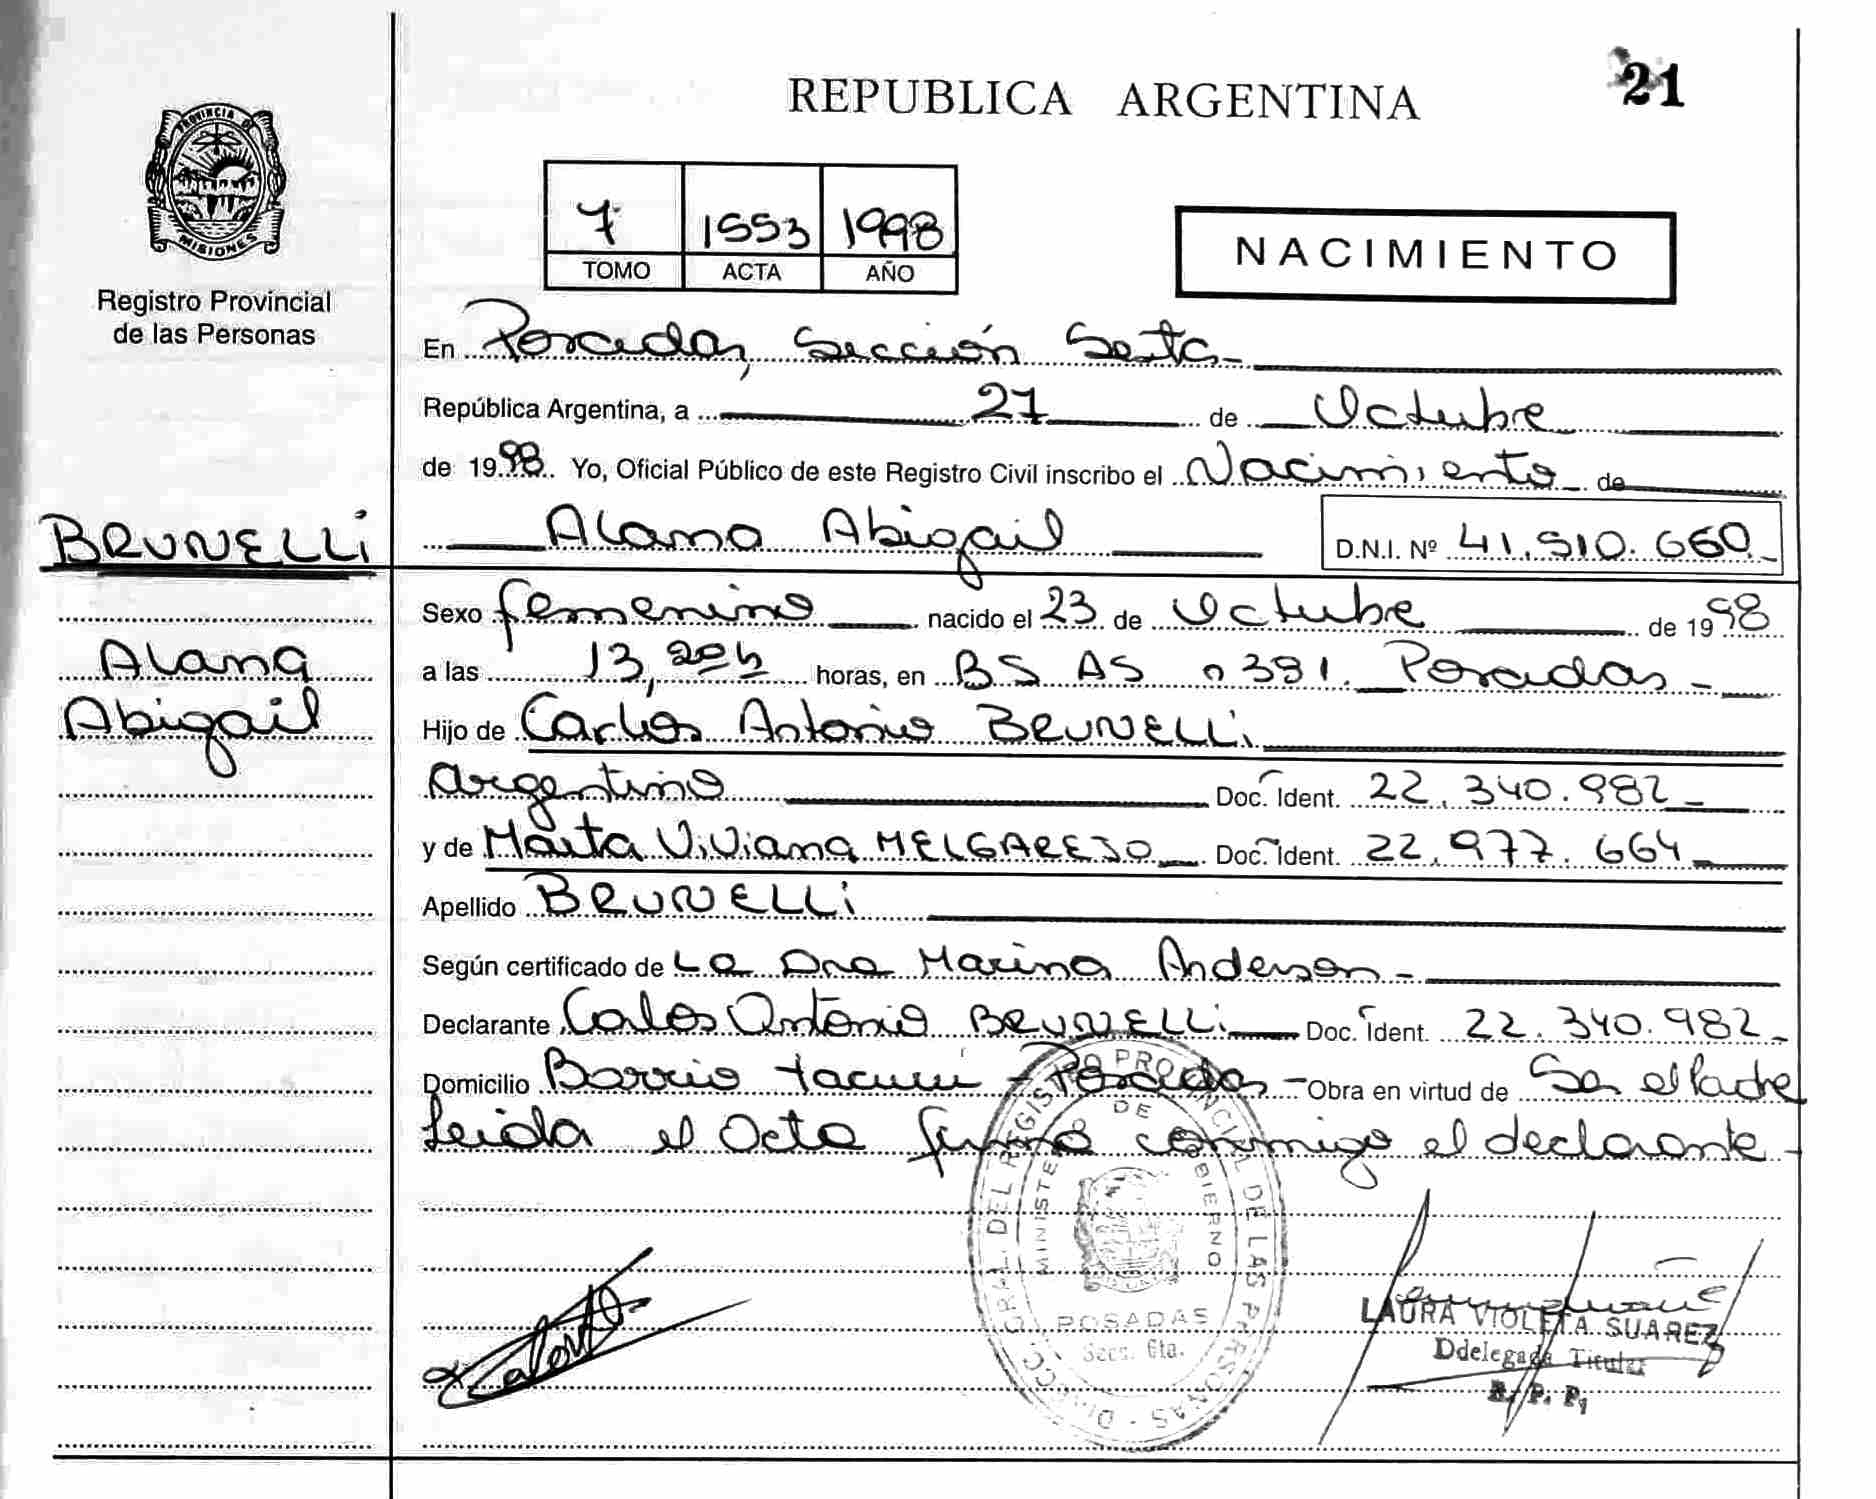 REPUBLICA ARGENTINA
21
PROVINCIA DE
MISIONES
Registro Provincial
de las Personas
7 1553 1998
TOMO ACTA AÑO
NACIMIENTO
En Posadas, Sección Sexta
República Argentina, a 27 de Octubre
de 1998 Yo, Oficial Público de este Registro Civil inscribo el Nacimiento de
BRUNELLi
Alana Abigail D.N.I. Nº 41.510.660
Alana
Abigail
Sexo femenino nacido el 23 de Octubre de 1998
a las 13,20h horas, en BS AS n 391. Posadas
Hijo de Carlos Antonio BRUNELLi
Argentino Doc. Ident. 22.340.982
y de Marta Viviana MELGAREJO Doc. Ident. 22.977.664
Apellido BRUNELLi
Según certificado de La Dra Marina Anderson
Declarante Carlos Antonio BRUNELLi Doc. Ident. 22.340.982
Domicilio Barrio Posadas Obra en virtud de Ser el Padre
Leida el Acta firma conmigo el declarante
DIRECC. GRAL. DEL REGISTRO PROVINCIAL DE LAS PERSONAS
MINISTERIO DE GOBIERNO
POSADAS
Secc. 6ta.
LAURA VIOLETA SUAREZ
Ddelegada Titular
R. P. P.